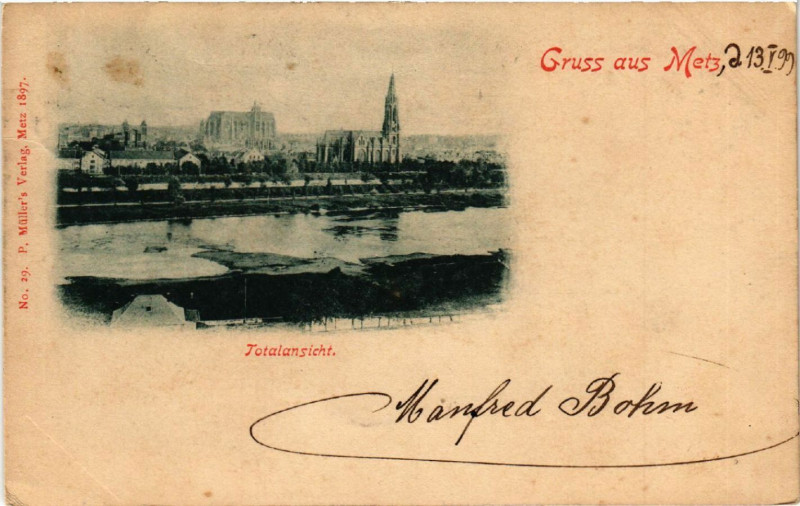 Gruss aus Metz, d 13/I 99
No. 29. P. Müller's Verlag, Metz 1897.
Totalansicht.
Manfred Bohm